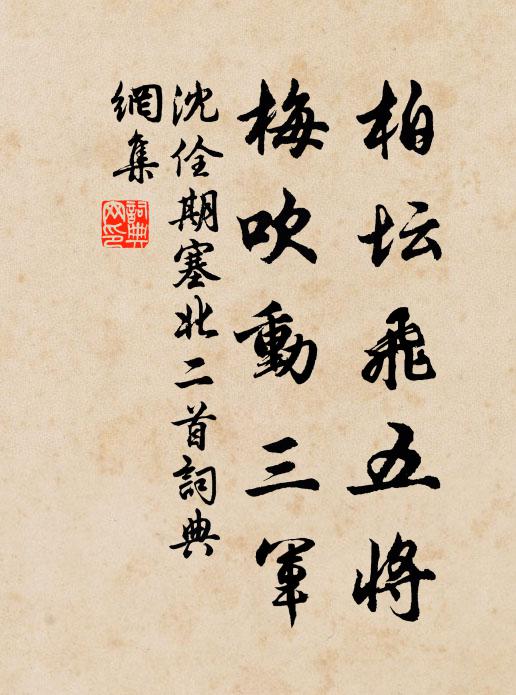 柏坛飛五將
梅吹動三軍
沈佺期塞北二首詞典
網集
詞典
网印